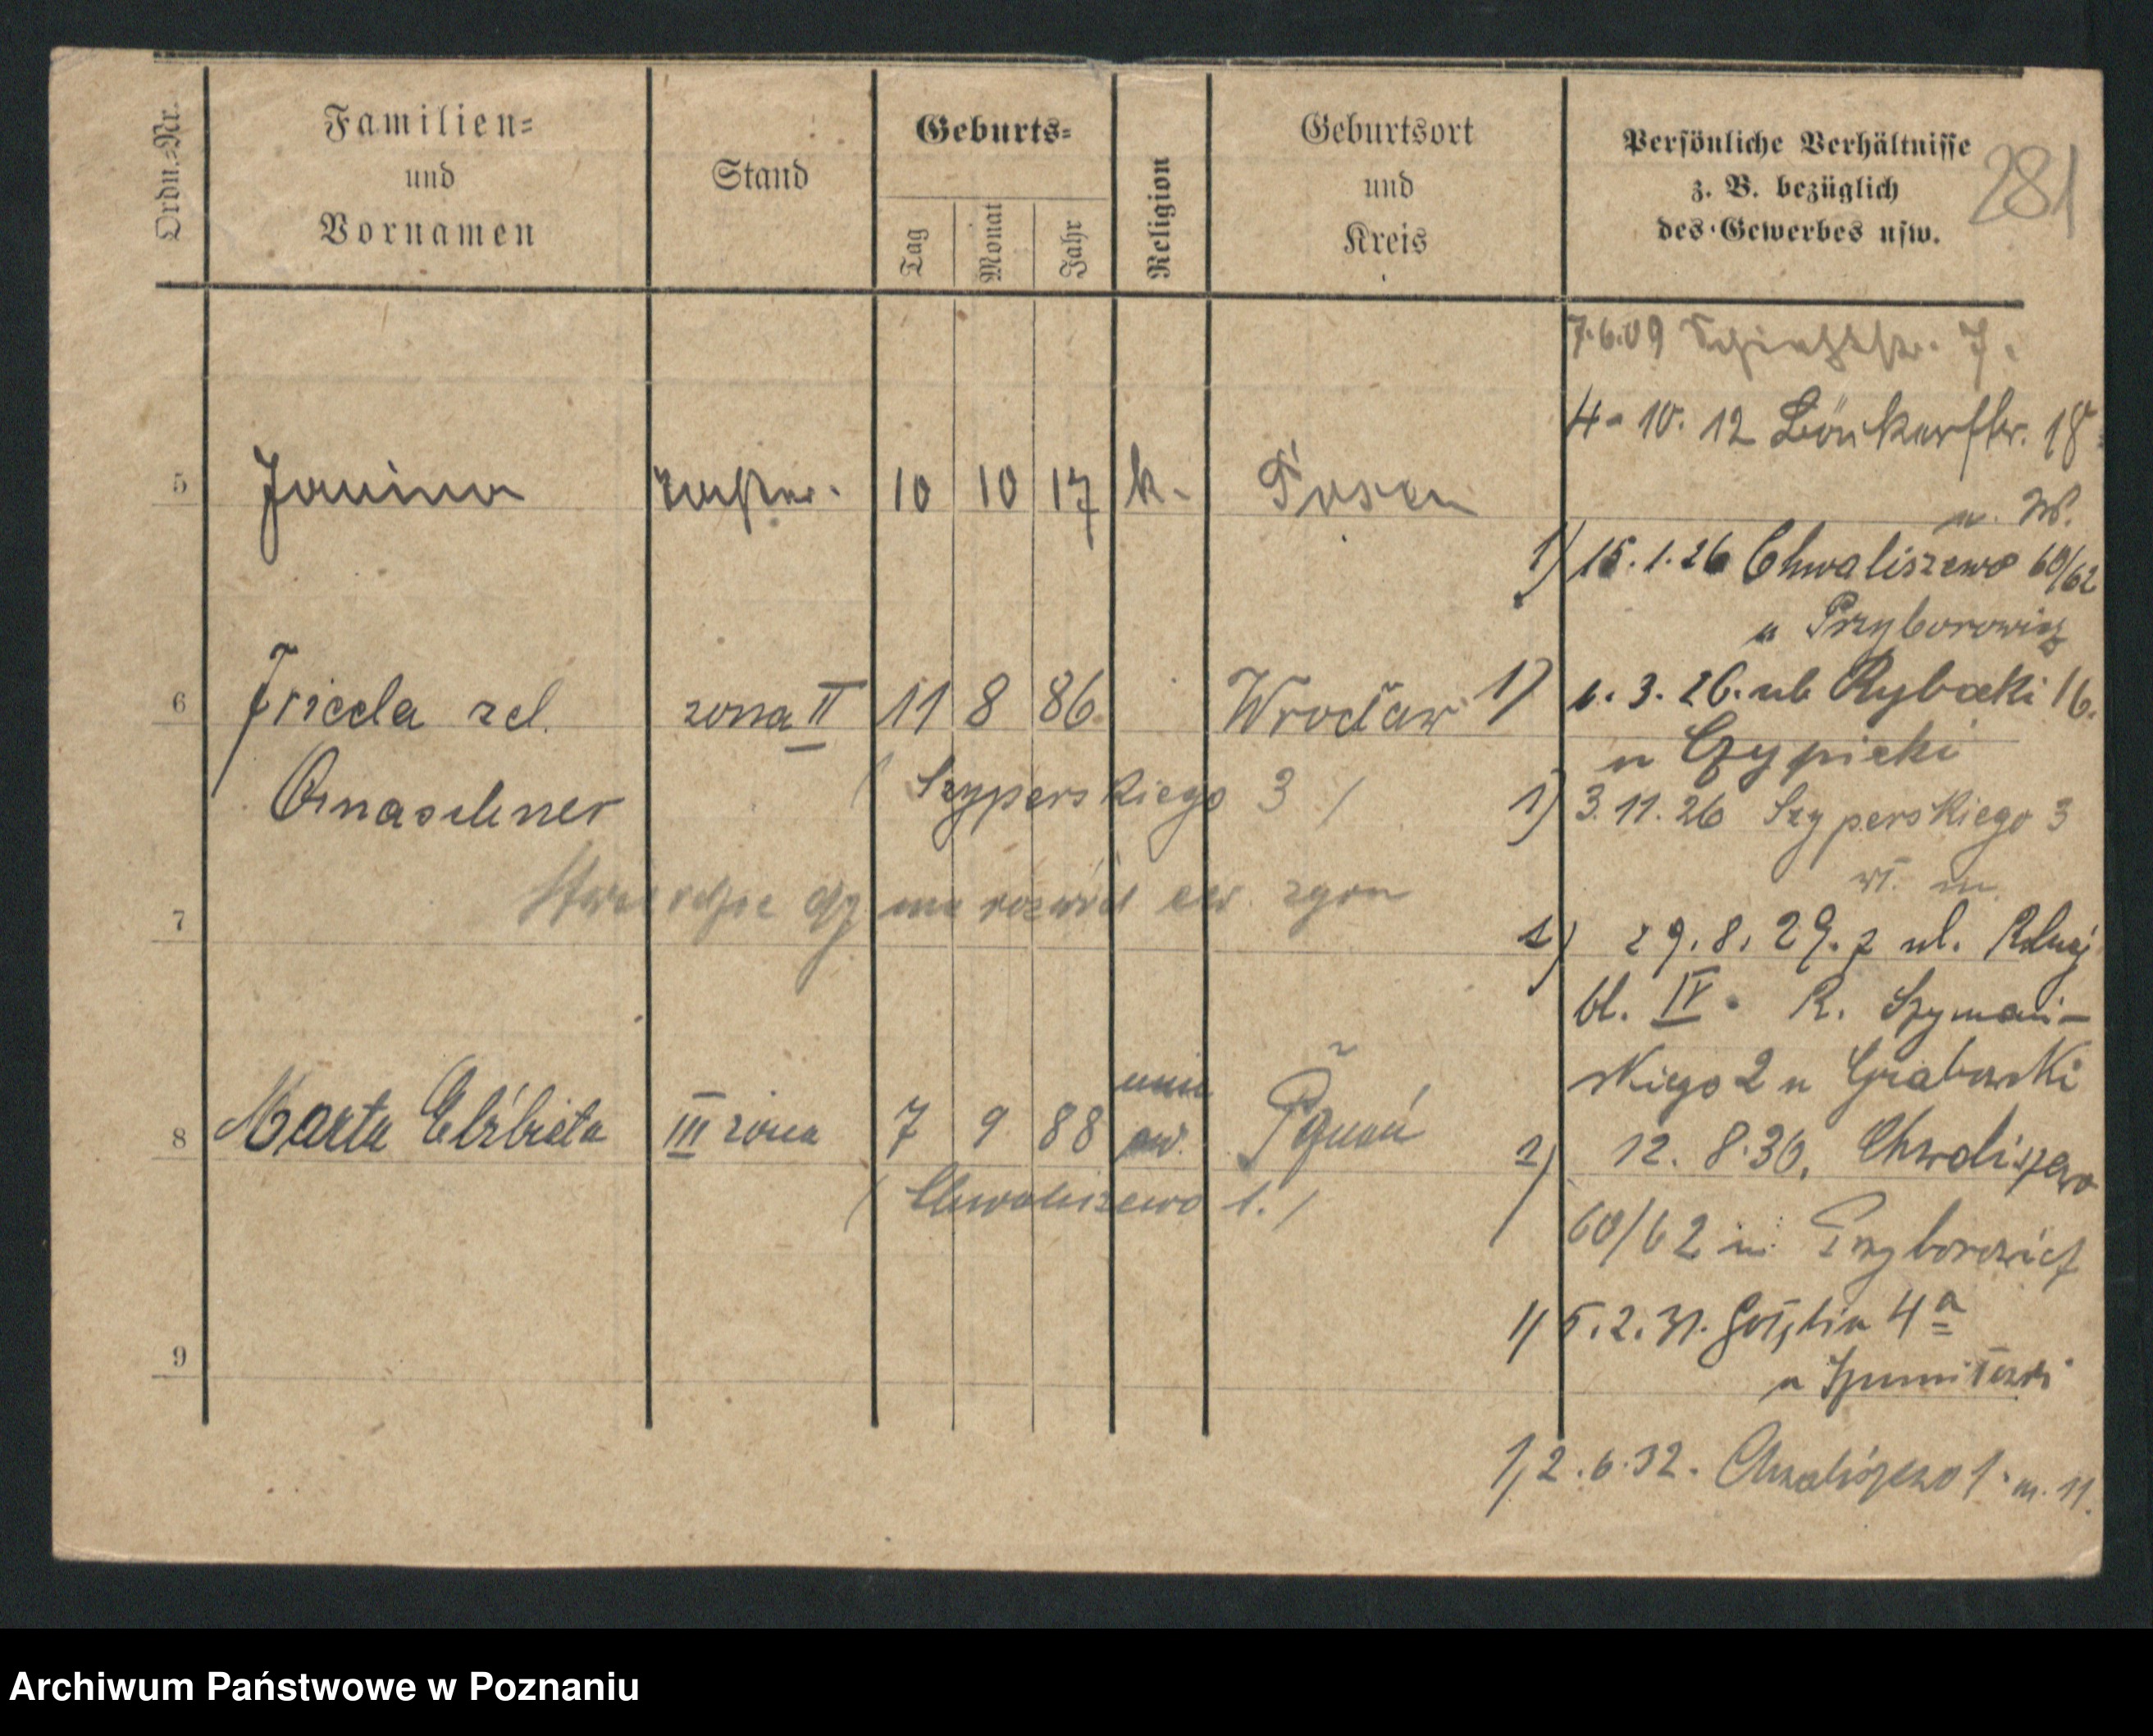 Ordn.=Nr.
Familien=
und
Vornamen
Stand
Geburts=
Tag
Monat
Jahr
Religion
Geburtsort
und
Kreis
Persönliche Verhältnisse
z. B. bezüglich
des Gewerbes usw.
281
7.6.09 7.
4-10.12 18
u. W.
5 Janina 10 10 17 k. Posen
1) 15.1.26 Chwaliszewo 60/62
u Przyborowicz
6 Frieda zd. żona II 11 8 86 Wrocław
1) 1.3.26. ul. Rybaki 16.
u
( Szyperskiego 3 )
1) 3.11.26 Szyperskiego 3
wł. m
7 czy ma rozwód ew. zgon
1) 29.8.29. z ul. Rolnej
bl. IV. R. Szymań-
skiego 2 u Grabowski
8 Marta Elżbieta III żona 7 9 88 ew. Poznań
( Chwaliszewo 1. )
2) 12.8.30. Chwaliszewo
60/62 u Przyborowicz
9
1) 5.2.31. 4a
u
1) 2.6.32. Chwaliszewo 1 m. 11.
Archiwum Państwowe w Poznaniu